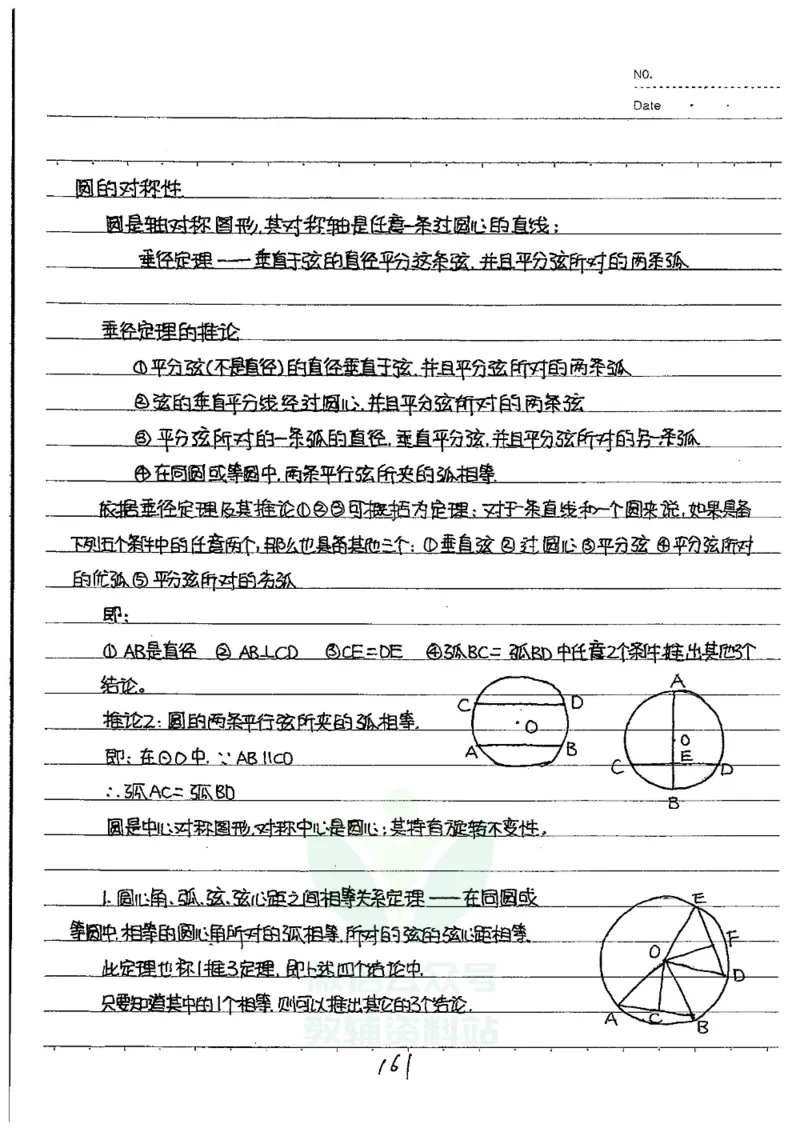 NO.
Date
圆的对称性
圆是轴对称图形,其对称轴是任意一条过圆心的直线;
垂径定理——垂直于弦的直径平分这条弦,并且平分弦所对的两条弧
垂径定理的推论
①平分弦(不是直径)的直径垂直于弦,并且平分弦所对的两条弧
②弦的垂直平分线经过圆心,并且平分弦所对的两条弦
③平分弦所对的一条弧的直径,垂直平分弦,并且平分弦所对的另一条弧
④在同圆或等圆中,两条平行弦所夹的弧相等
依据垂径定理及其推论①②③可概括为定理:对于一条直线和一个圆来说,如果具备
下列五个条件中的任意两个,那么也具备其他三个:①垂直弦 ②过圆心 ③平分弦 ④平分弦所对
的优弧 ⑤平分弦所对的劣弧
即:
① AB是直径 ② AB⊥CD ③CE=DE ④弧BC=弧BD 中任意2个条件推出其他3个
结论。
推论2:圆的两条平行弦所夹的弧相等.
即:在⊙O中,∵AB∥CD
∴弧AC=弧BD
C D
O
A B
A
O
E
C D
B
圆是中心对称图形,对称中心是圆心;其特有旋转不变性。
1.圆心角、弧、弦、弦心距之间相等关系定理——在同圆或
等圆中,相等的圆心角所对的弧相等,所对的弦的弦心距相等.
此定理也称1推3定理,即上述四个结论中,
只要知道其中的1个相等,则可以推出其它的3个结论.
E
F
O
D
A C B
微信公众号
教辅资料站
161